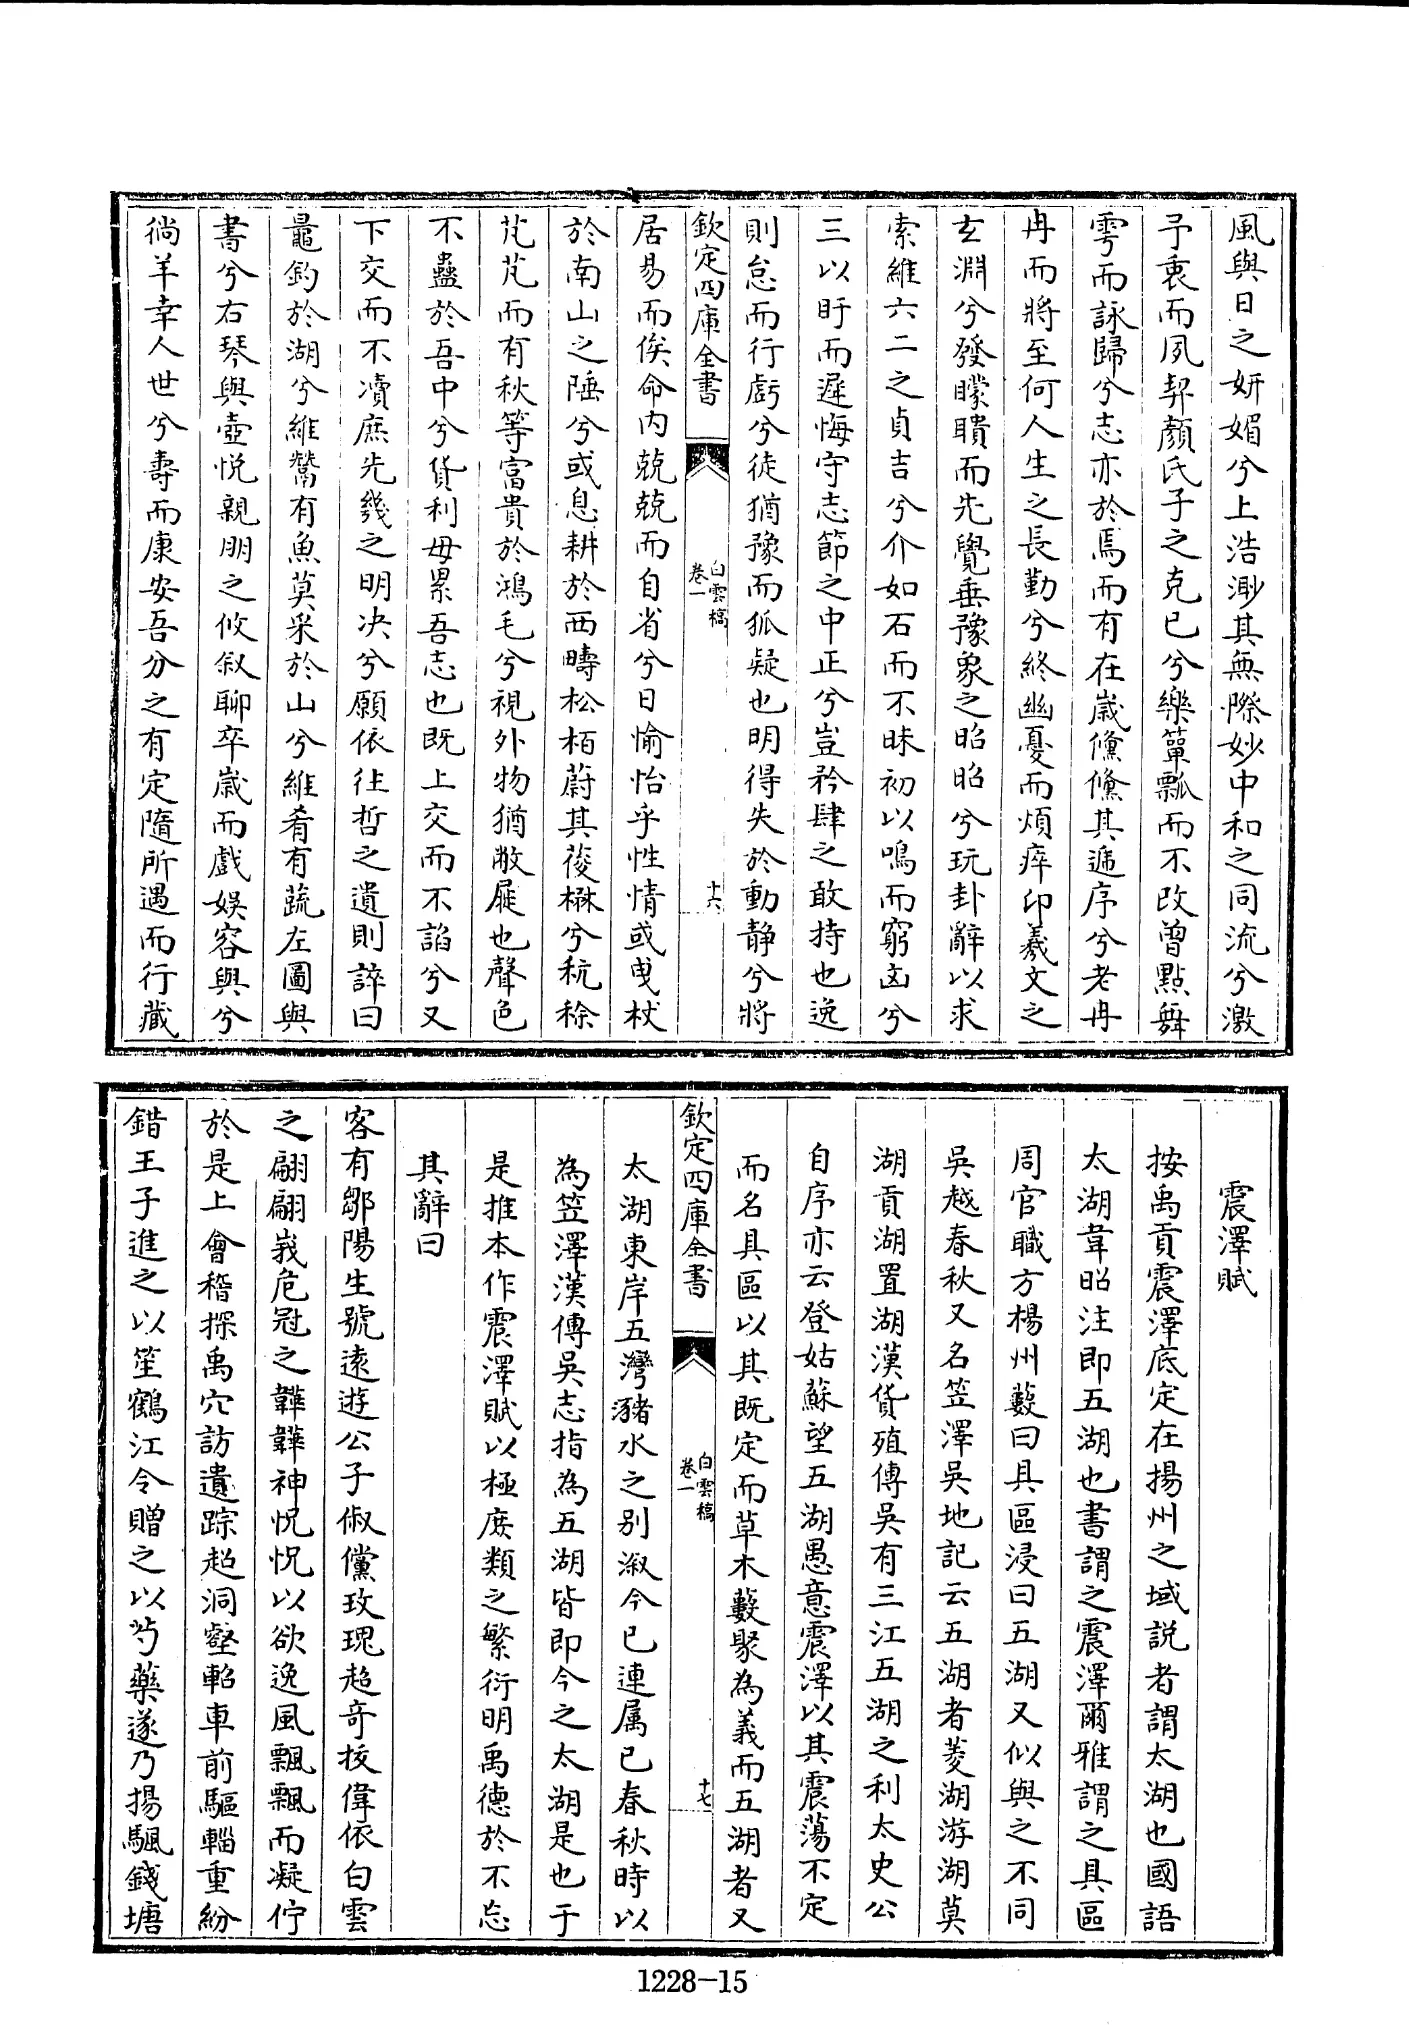 風與日之妍媚兮上浩渺其無際妙中和之同流兮激
予衷而夙契顏氏子之克已兮樂簞瓢而不改曾點舞
雩而詠歸兮志亦於焉而有在歲儵儵其遞序兮老冉
冉而將至何人生之長勤兮終幽憂而煩瘁仰羲文之
玄淵兮發矇聵而先覺垂豫象之昭昭兮玩卦辭以求
索維六二之貞吉兮介如石而不昧初以鳴而窮凶兮
三以盱而遲悔守志節之中正兮豈矜肆之敢持也逸
則怠而行虧兮徒猶豫而狐疑也明得失於動靜兮將
欽定四庫全書
白雲稿
卷一
十六
居易而俟命内兢兢而自省兮日愉怡乎性情或曳杖
於南山之陲兮或息耕於西疇松栢蔚其葰楙兮秔稌
芃芃而有秋等富貴於鴻毛兮視外物猶敝屣也聲色
不蠱於吾中兮貨利毋累吾志也既上交而不諂兮又
下交而不瀆庶先幾之明决兮願依往哲之遺則誶曰
鼂釣於湖兮維鬵有魚莫采於山兮維肴有蔬左圖與
書兮右琴與壺悦親朋之攸叙聊卒歳而戲娱容與兮
徜羊幸人世兮壽而康安吾分之有定隨所遇而行藏
震澤賦
按禹貢震澤底定在揚州之域説者謂太湖也國語
太湖韋昭注即五湖也書謂之震澤爾雅謂之具區
周官職方楊州藪曰具區浸曰五湖又似與之不同
吳越春秋又名笠澤吳地記云五湖者菱湖游湖莫
湖貢湖胥湖漢貨殖傳吳有三江五湖之利太史公
自序亦云登姑蘇望五湖愚意震澤以其震蕩不定
而名具區以其既定而草木藪聚為義而五湖者又
欽定四庫全書
白雲稿
卷一
十七
太湖東岸五灣豬水之别溆今已連属已春秋時以
為笠澤漢傳吳志指為五湖皆即今之太湖是也于
是推本作震澤賦以極庶類之繁衍明禹德於不忘
其辭曰
客有鄒陽生號遠遊公子俶儻玫瑰超奇挍偉依白雲
之翩翩峩危冠之韡韡神怳怳以欲逸風飄飄而凝佇
於是上會稽探禹穴訪遺踪起洞壑軺車前驅輜重紛
錯王子進之以笙鶴江令贈之以芍藥遂乃揚颿錢塘
1228-15